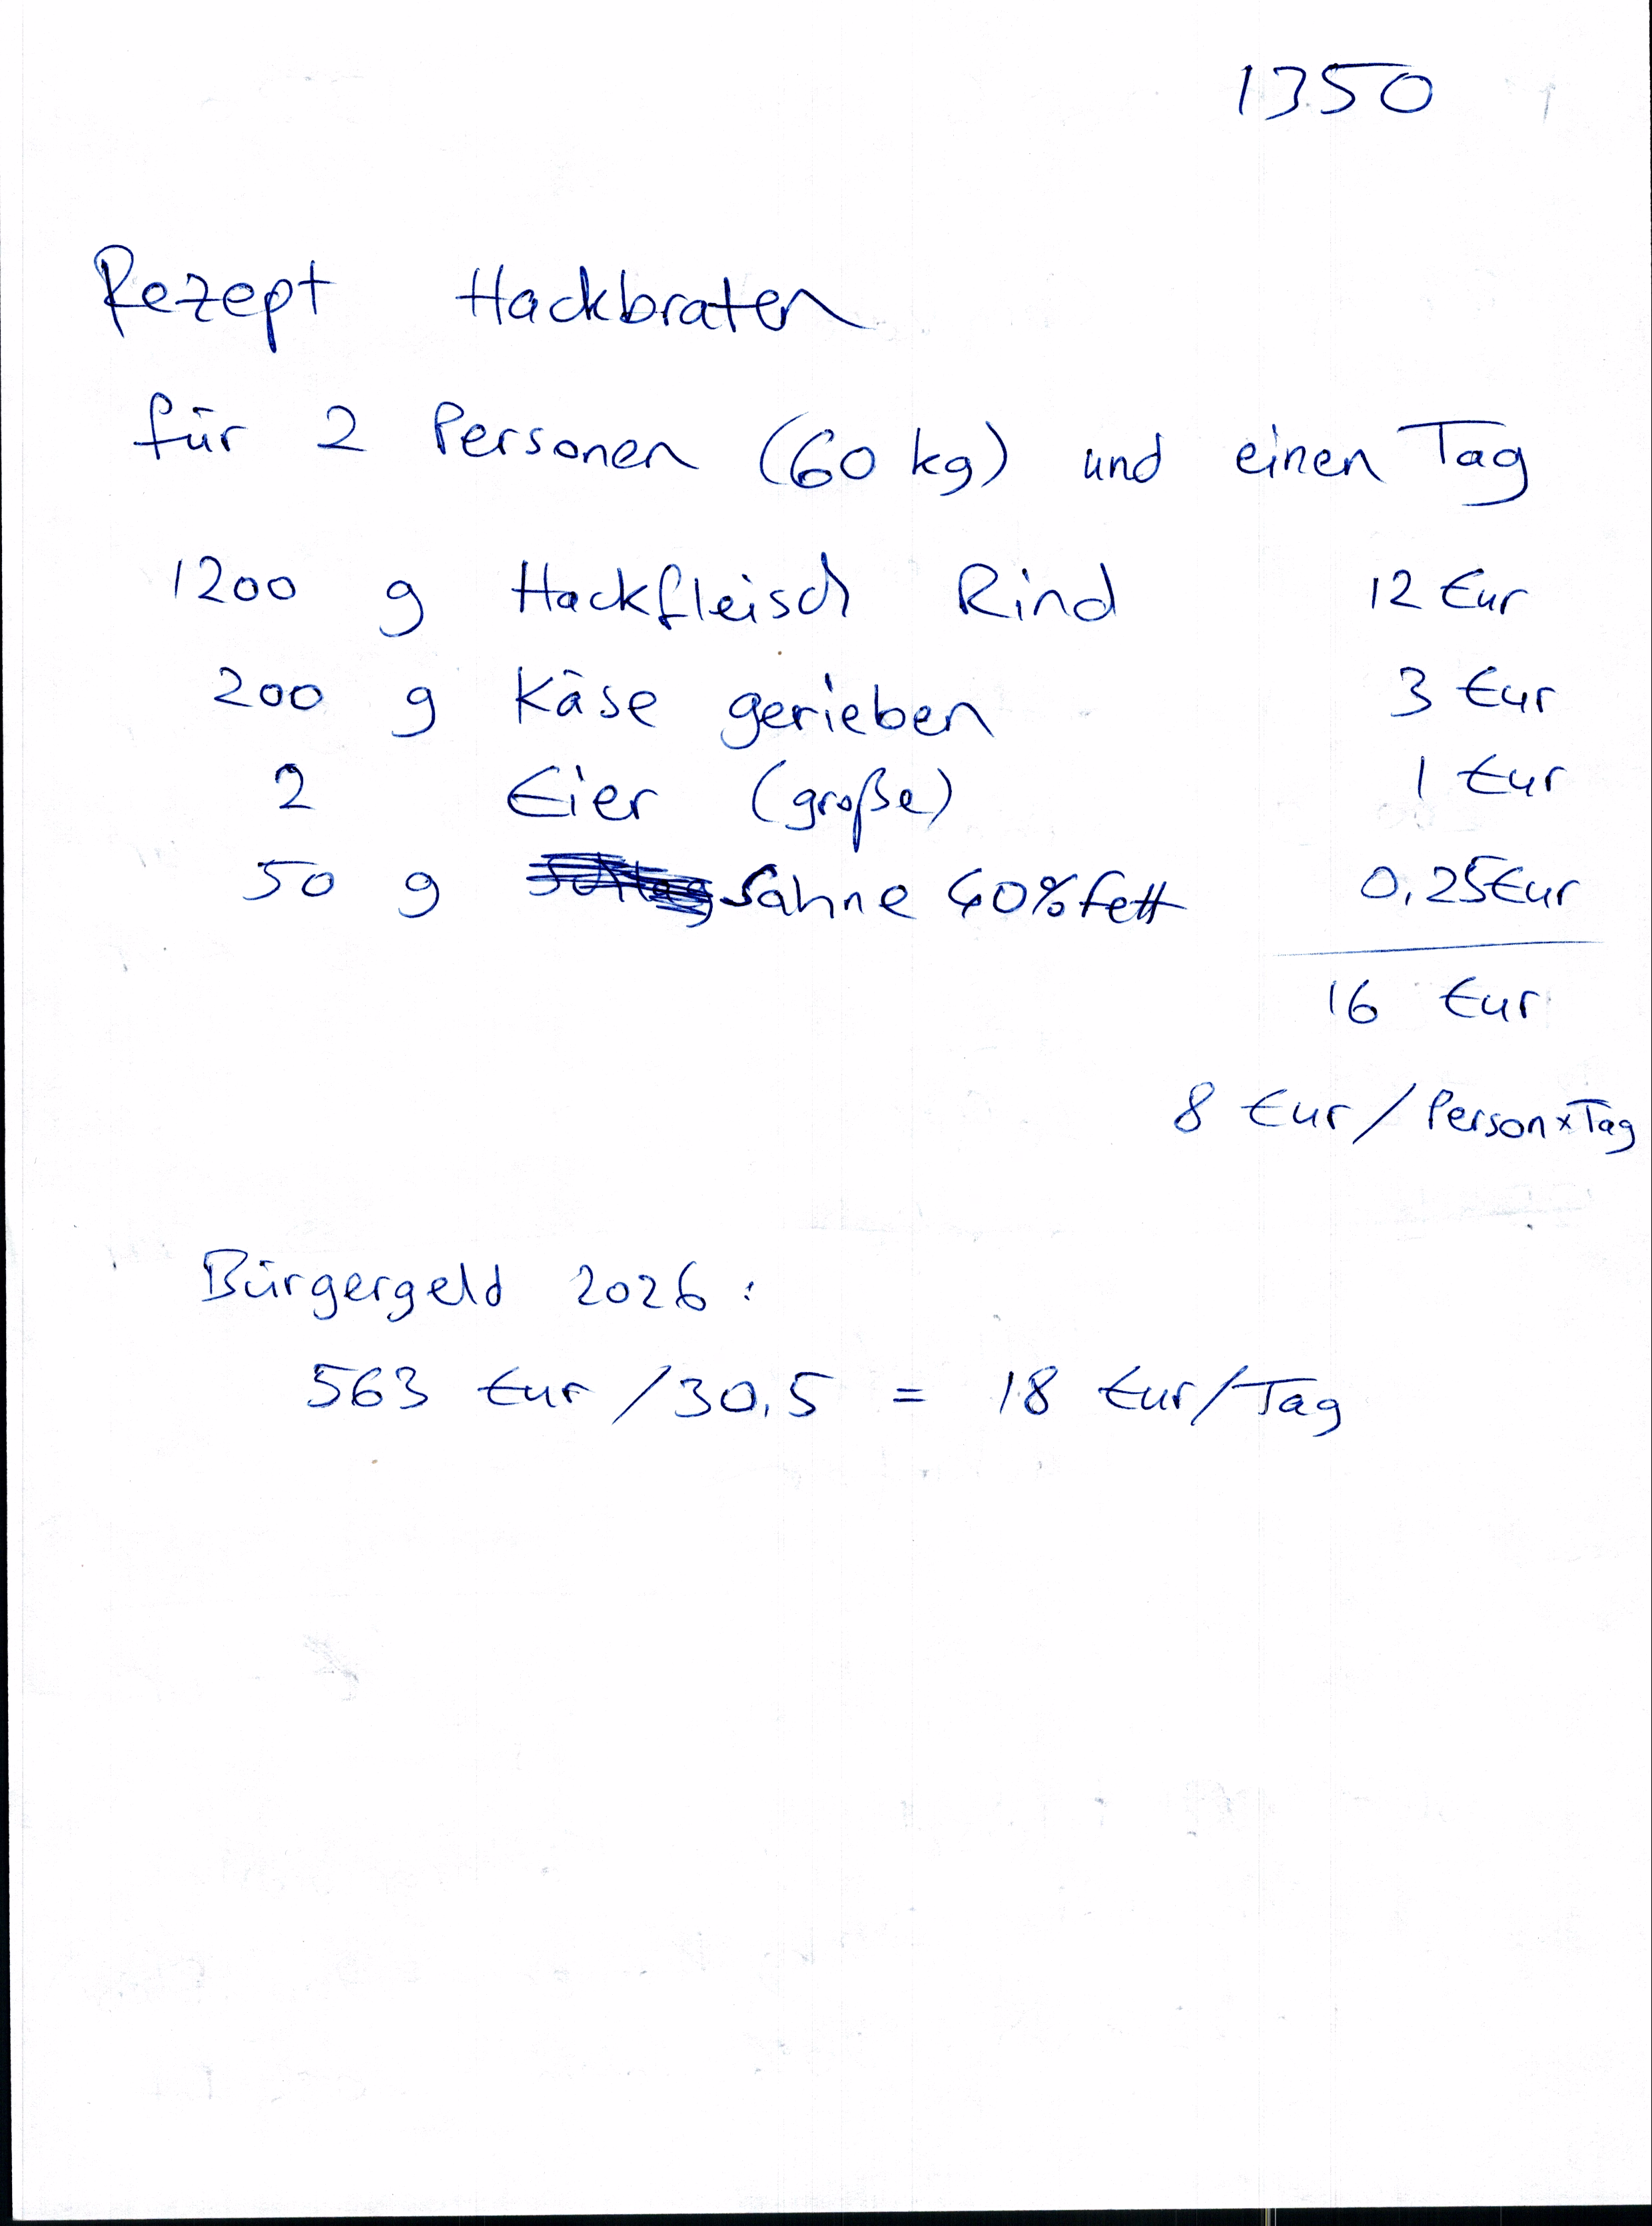 1350
Rezept Hackbraten
für 2 Personen (60 kg) und einen Tag
1200 g Hackfleisch Rind 12 Eur
200 g Käse gerieben 3 Eur
2 Eier (große) 1 Eur
50 g Sahne 40% Fett 0,25 Eur
16 Eur
8 Eur / Person x Tag
Bürgergeld 2026:
563 Eur / 30,5 = 18 Eur/Tag